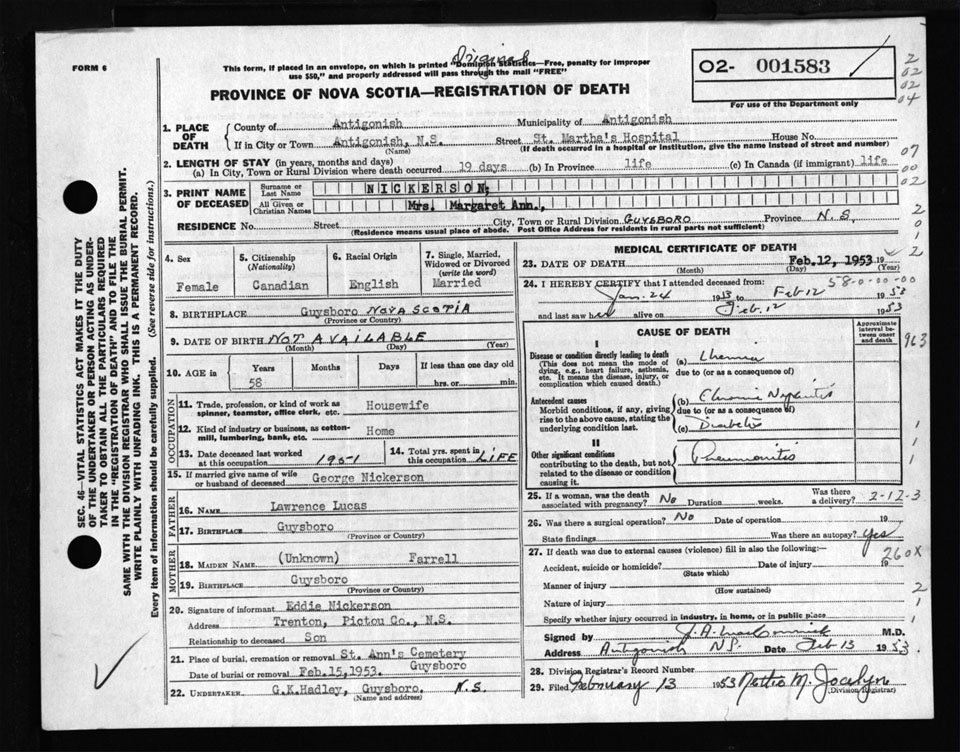 FORM 6
Original
This form, if placed in an envelope, on which is printed "Dominion Statistics—Free, penalty for improper
use $50," and properly addressed will pass through the mail "FREE"
PROVINCE OF NOVA SCOTIA—REGISTRATION OF DEATH
O2- 001583
For use of the Department only
2
02
02
04
1. PLACE OF DEATH
County of Antigonish Municipality of Antigonish
If in City or Town Antigonish, N.S. Street St. Martha's Hospital House No.
(Name) (If death occurred in a hospital or institution, give the name instead of street and number)
2. LENGTH OF STAY (in years, months and days)
(a) In City, Town or Rural Division where death occurred 19 days (b) In Province life (c) In Canada (if immigrant) life
07
00
02
3. PRINT NAME OF DECEASED
Surname or Last Name NICKERSON,
All Given or Christian Names Mrs. Margaret Ann.,
RESIDENCE No. Street City, Town or Rural Division GUYSBORO Province N.S.
(Residence means usual place of abode. Post Office Address for residents in rural parts not sufficient)
2
0
1
2
4. Sex Female
5. Citizenship (Nationality) Canadian
6. Racial Origin English
7. Single, Married, Widowed or Divorced (write the word) Married
8. BIRTHPLACE Guysboro NOVA SCOTIA
(Province or Country)
9. DATE OF BIRTH NOT AVAILABLE
(Month) (Day) (Year)
10. AGE in Years 58 Months Days If less than one day old hrs. or min.
OCCUPATION
11. Trade, profession, or kind of work as spinner, teamster, office clerk, etc. Housewife
12. Kind of industry or business, as cotton-mill, lumbering, bank, etc. Home
13. Date deceased last worked at this occupation 1951
14. Total yrs. spent in this occupation LIFE
15. If married give name of wife or husband of deceased George Nickerson
FATHER
16. NAME Lawrence Lucas
17. BIRTHPLACE Guysboro
(Province or Country)
MOTHER
18. MAIDEN NAME (Unknown) Farrell
19. BIRTHPLACE Guysboro
(Province or Country)
20. Signature of informant Eddie Nickerson
Address Trenton, Pictou Co., N.S.
Relationship to deceased Son
21. Place of burial, cremation or removal St. Ann's Cemetery
Guysboro
Date of burial or removal Feb.15,1953.
22. UNDERTAKER G.K.Hadley, Guysboro. N.S.
(Name and address)
MEDICAL CERTIFICATE OF DEATH
23. DATE OF DEATH Feb.12, 1953 19
(Month) (Day) (Year)
58-0-00-00
24. I HEREBY CERTIFY that I attended deceased from:
Jan. 24 1953 to Feb 12 1953
and last saw her alive on Feb. 12 1953
CAUSE OF DEATH
Approximate interval between onset and death
963
I
Disease or condition directly leading to death
(This does not mean the mode of dying, e.g., heart failure, asthenia, etc. It means the disease, injury, or complication which caused death.)
(a)
due to (or as a consequence of)
Antecedent causes
Morbid conditions, if any, giving rise to the above cause, stating the underlying condition last.
(b) Chronic Nephritis
due to (or as a consequence of)
(c) Diabetes
II
Other significant conditions
contributing to the death, but not related to the disease or condition causing it.
Pneumonitis
1
1
1
25. If a woman, was the death associated with pregnancy? No Duration weeks. Was there a delivery? 2-12-3
26. Was there a surgical operation? No Date of operation 19
State findings Was there an autopsy? Yes
27. If death was due to external causes (violence) fill in also the following:— 260X
Accident, suicide or homicide? Date of injury 19
(State which)
Manner of injury
(How sustained)
Nature of injury
2
1
Specify whether injury occurred in industry, in home, or in public place
Signed by M.D.
Address Antigonish NS. Date Feb 13 1953.
28. Division Registrar's Record Number
29. Filed February 13 1953 Nettie M. Jocelyn
(Division Registrar)
SEC. 46—VITAL STATISTICS ACT MAKES IT THE DUTY
OF THE UNDERTAKER OR PERSON ACTING AS UNDER-
TAKER TO OBTAIN ALL THE PARTICULARS REQUIRED
IN THE "REGISTRATION OF DEATH" AND TO FILE THE
SAME WITH THE DIVISION REGISTRAR WHO SHALL ISSUE THE BURIAL PERMIT.
WRITE PLAINLY WITH UNFADING INK. THIS IS A PERMANENT RECORD.
Every item of information should be carefully supplied. (See reverse side for instructions.)